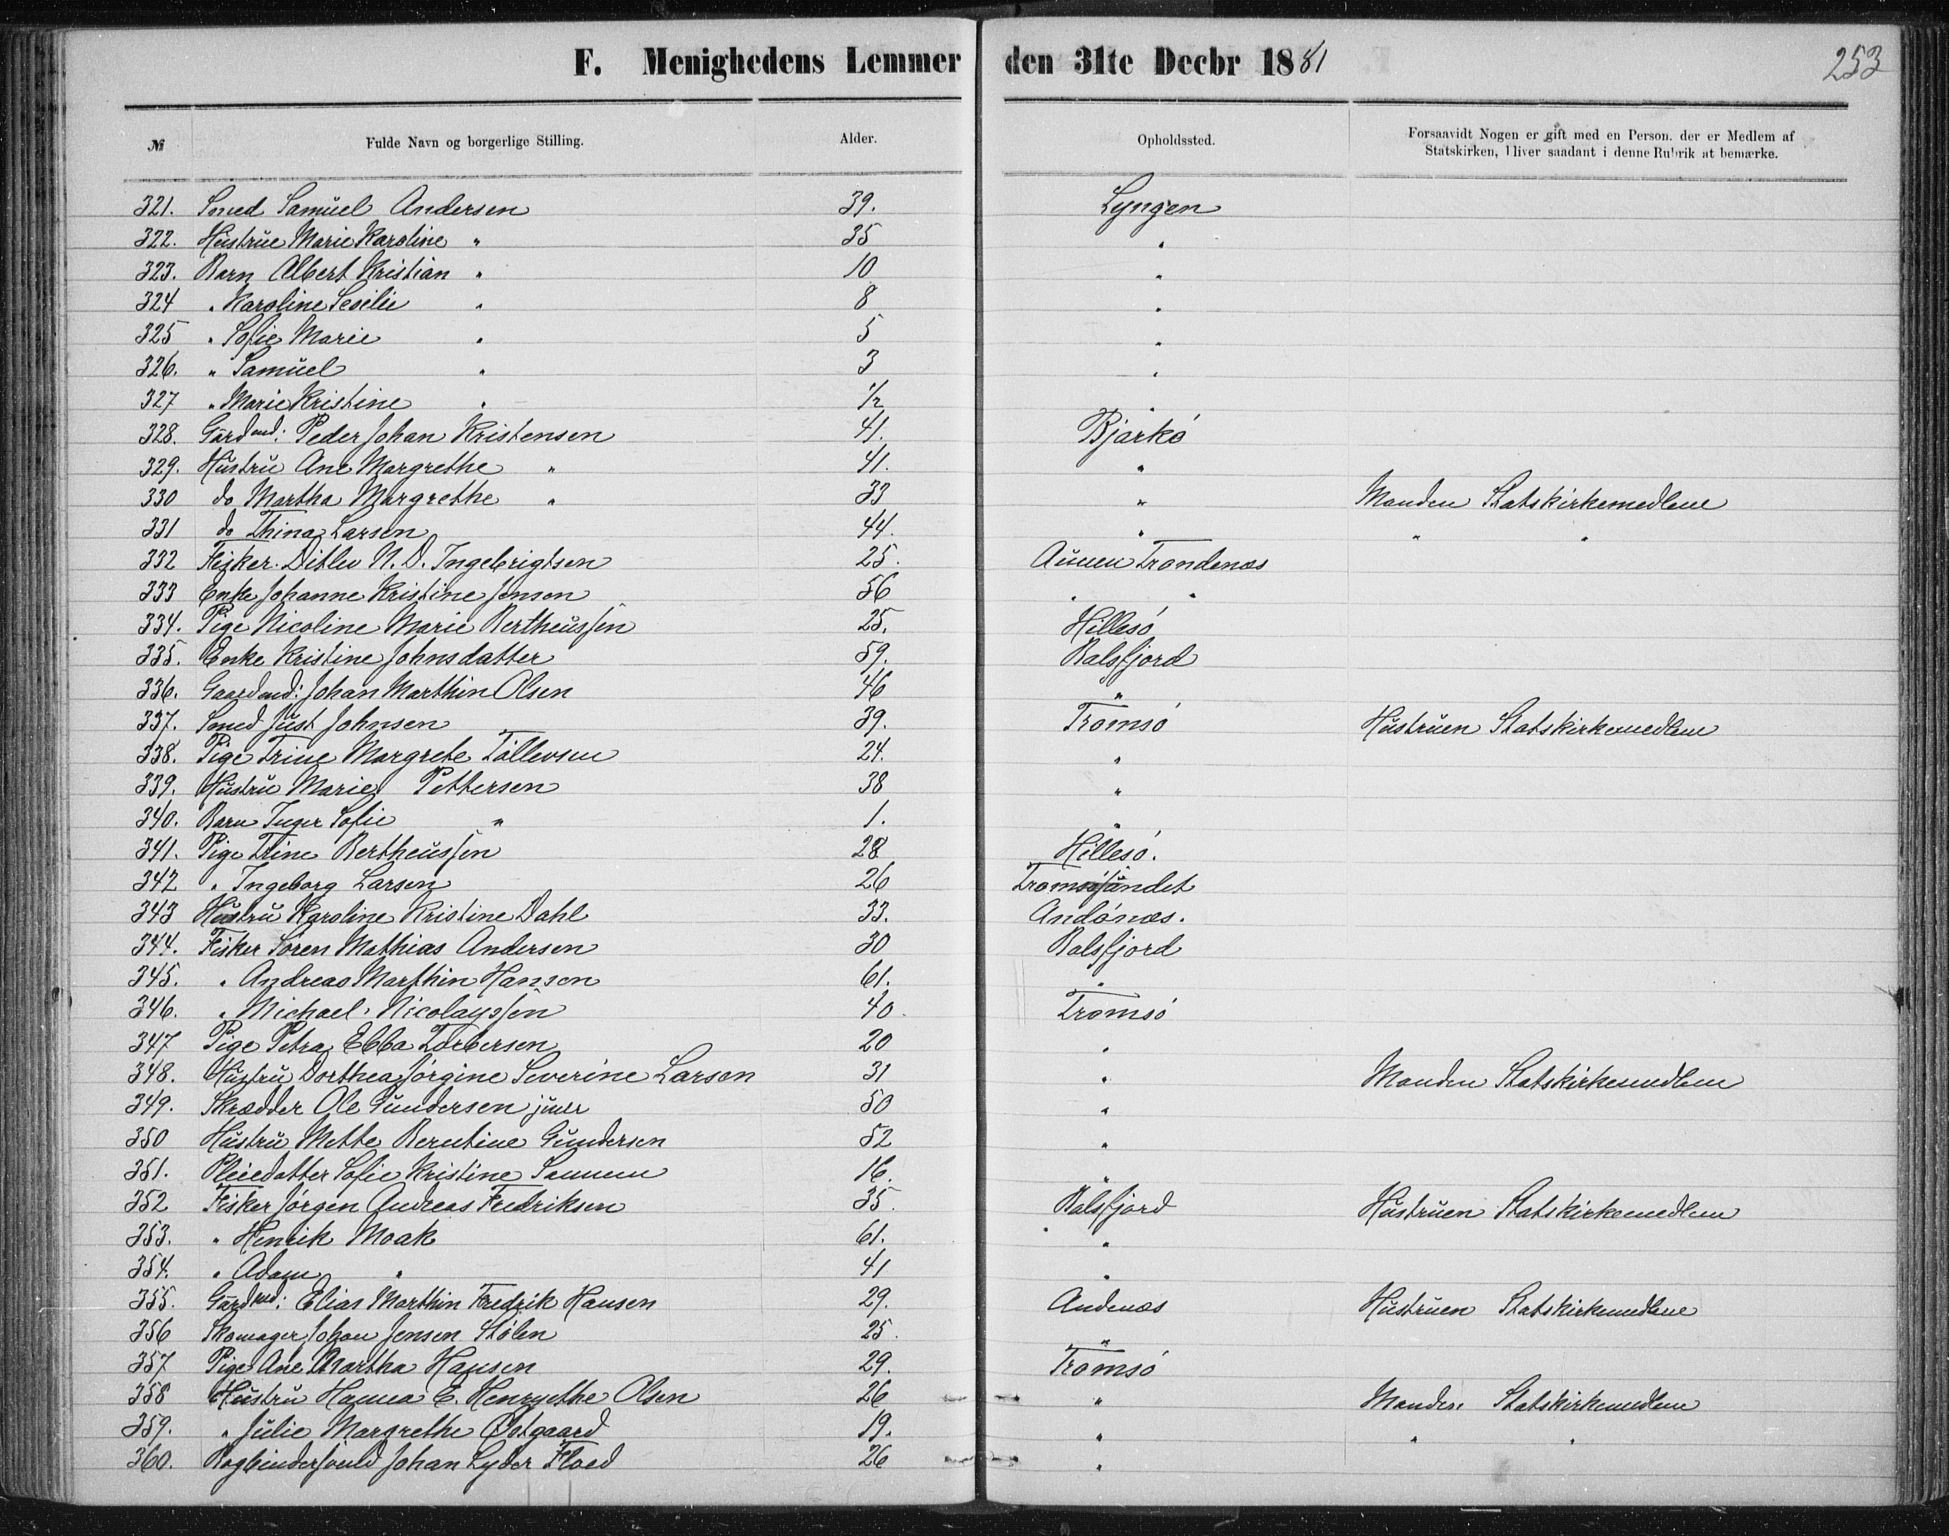 F. Menighedens Lemmer den 31te Decbr 1881 253
№ Fulde Navn og borgerlige Stilling. Alder. Opholdssted. Forsaavidt Nogen er gift med en Person, der er Medlem af
Statskirken, bliver saadant i denne Rubrik at bemærke.
321. Smed Samuel Andersen 39. Lyngen
322. Hustrue Marie Karoline " 35 "
323. Barn Albert Kristian " 10 "
324 " Karoline Sesilie " 8 "
325 " Sofie Marie " 5 "
326. " Samuel " 3 "
327 " Marie Kristine " 1/2 "
328. Gårdmd: Peder Johan Kristensen 41. Bjarkö
329. Hustru Ane Margrethe " 41. "
330 do Martha Margrethe " 33 " Manden Statskirkemedlem
331 do Thina Larsen 44. " " "
332 Fisker Ditlev N. D. Ingebrigtsen 25. Trondenæs
333 Enke Johanne Kristine Jensen 56 " "
334. Pige Nicoline Marie Bertheussen 25. Hillesö
335. Enke Kristine Johnsdatter 59. Balsfjord
336. Gaardmd: Johan Marthin Olsen 46 "
337. Smed Just Johnsen 39. Tromsö Hustruen Statskirkemedlem
338. Pige Trine Margrete Tollevsen 24. "
339. Hustru Marie Pettersen 38 "
340. Barn Inger Sofie " 1. "
341. Pige Trine Bertheussen 28 Hillesö.
342 " Ingeborg Larsen 26 Tromsösundet
343 Hustru Karoline Kristine Dahl 33. Andönæs.
344. Fisker Sören Mathias Andersen 30 Balsfjord
345. " Andreas Marthin Hansen 61. "
346. " Michael Nicolayssen 40. Tromsö
347 Pige Petra Ebba Torbersen 20 "
348. Hustru Dorthea Jørgine Severine Larsen 31 " Manden Statskirkemedlem
349. Skrædder Ole Gundersen junr 50 "
350 Hustru Mette Berntine Gundersen 52 "
351. Pleiedatter Sofie Kristine 16. "
352 Fisker Jørgen Andreas Fredriksen 35. Balsfjord Hustruen Statskirkemedlem
353. " Henrik Moak 61. "
354. " Adam " 41 "
355. Gårdmd: Elias Marthin Fredrik Hansen 29. Andenæs Hustruen Statskirkemedlem
356 Skomager Johan Jensen Stølen 25. "
357 Pige Ane Martha Hansen 29. Tromsö
358 Hustru Hanna E. Henryethe Olsen 26 " Manden Statskirkemedlem
359. " Julie Margrethe Østgaard 19. " " "
360. Bogbindersvend Johan Lyder Floed 26 "